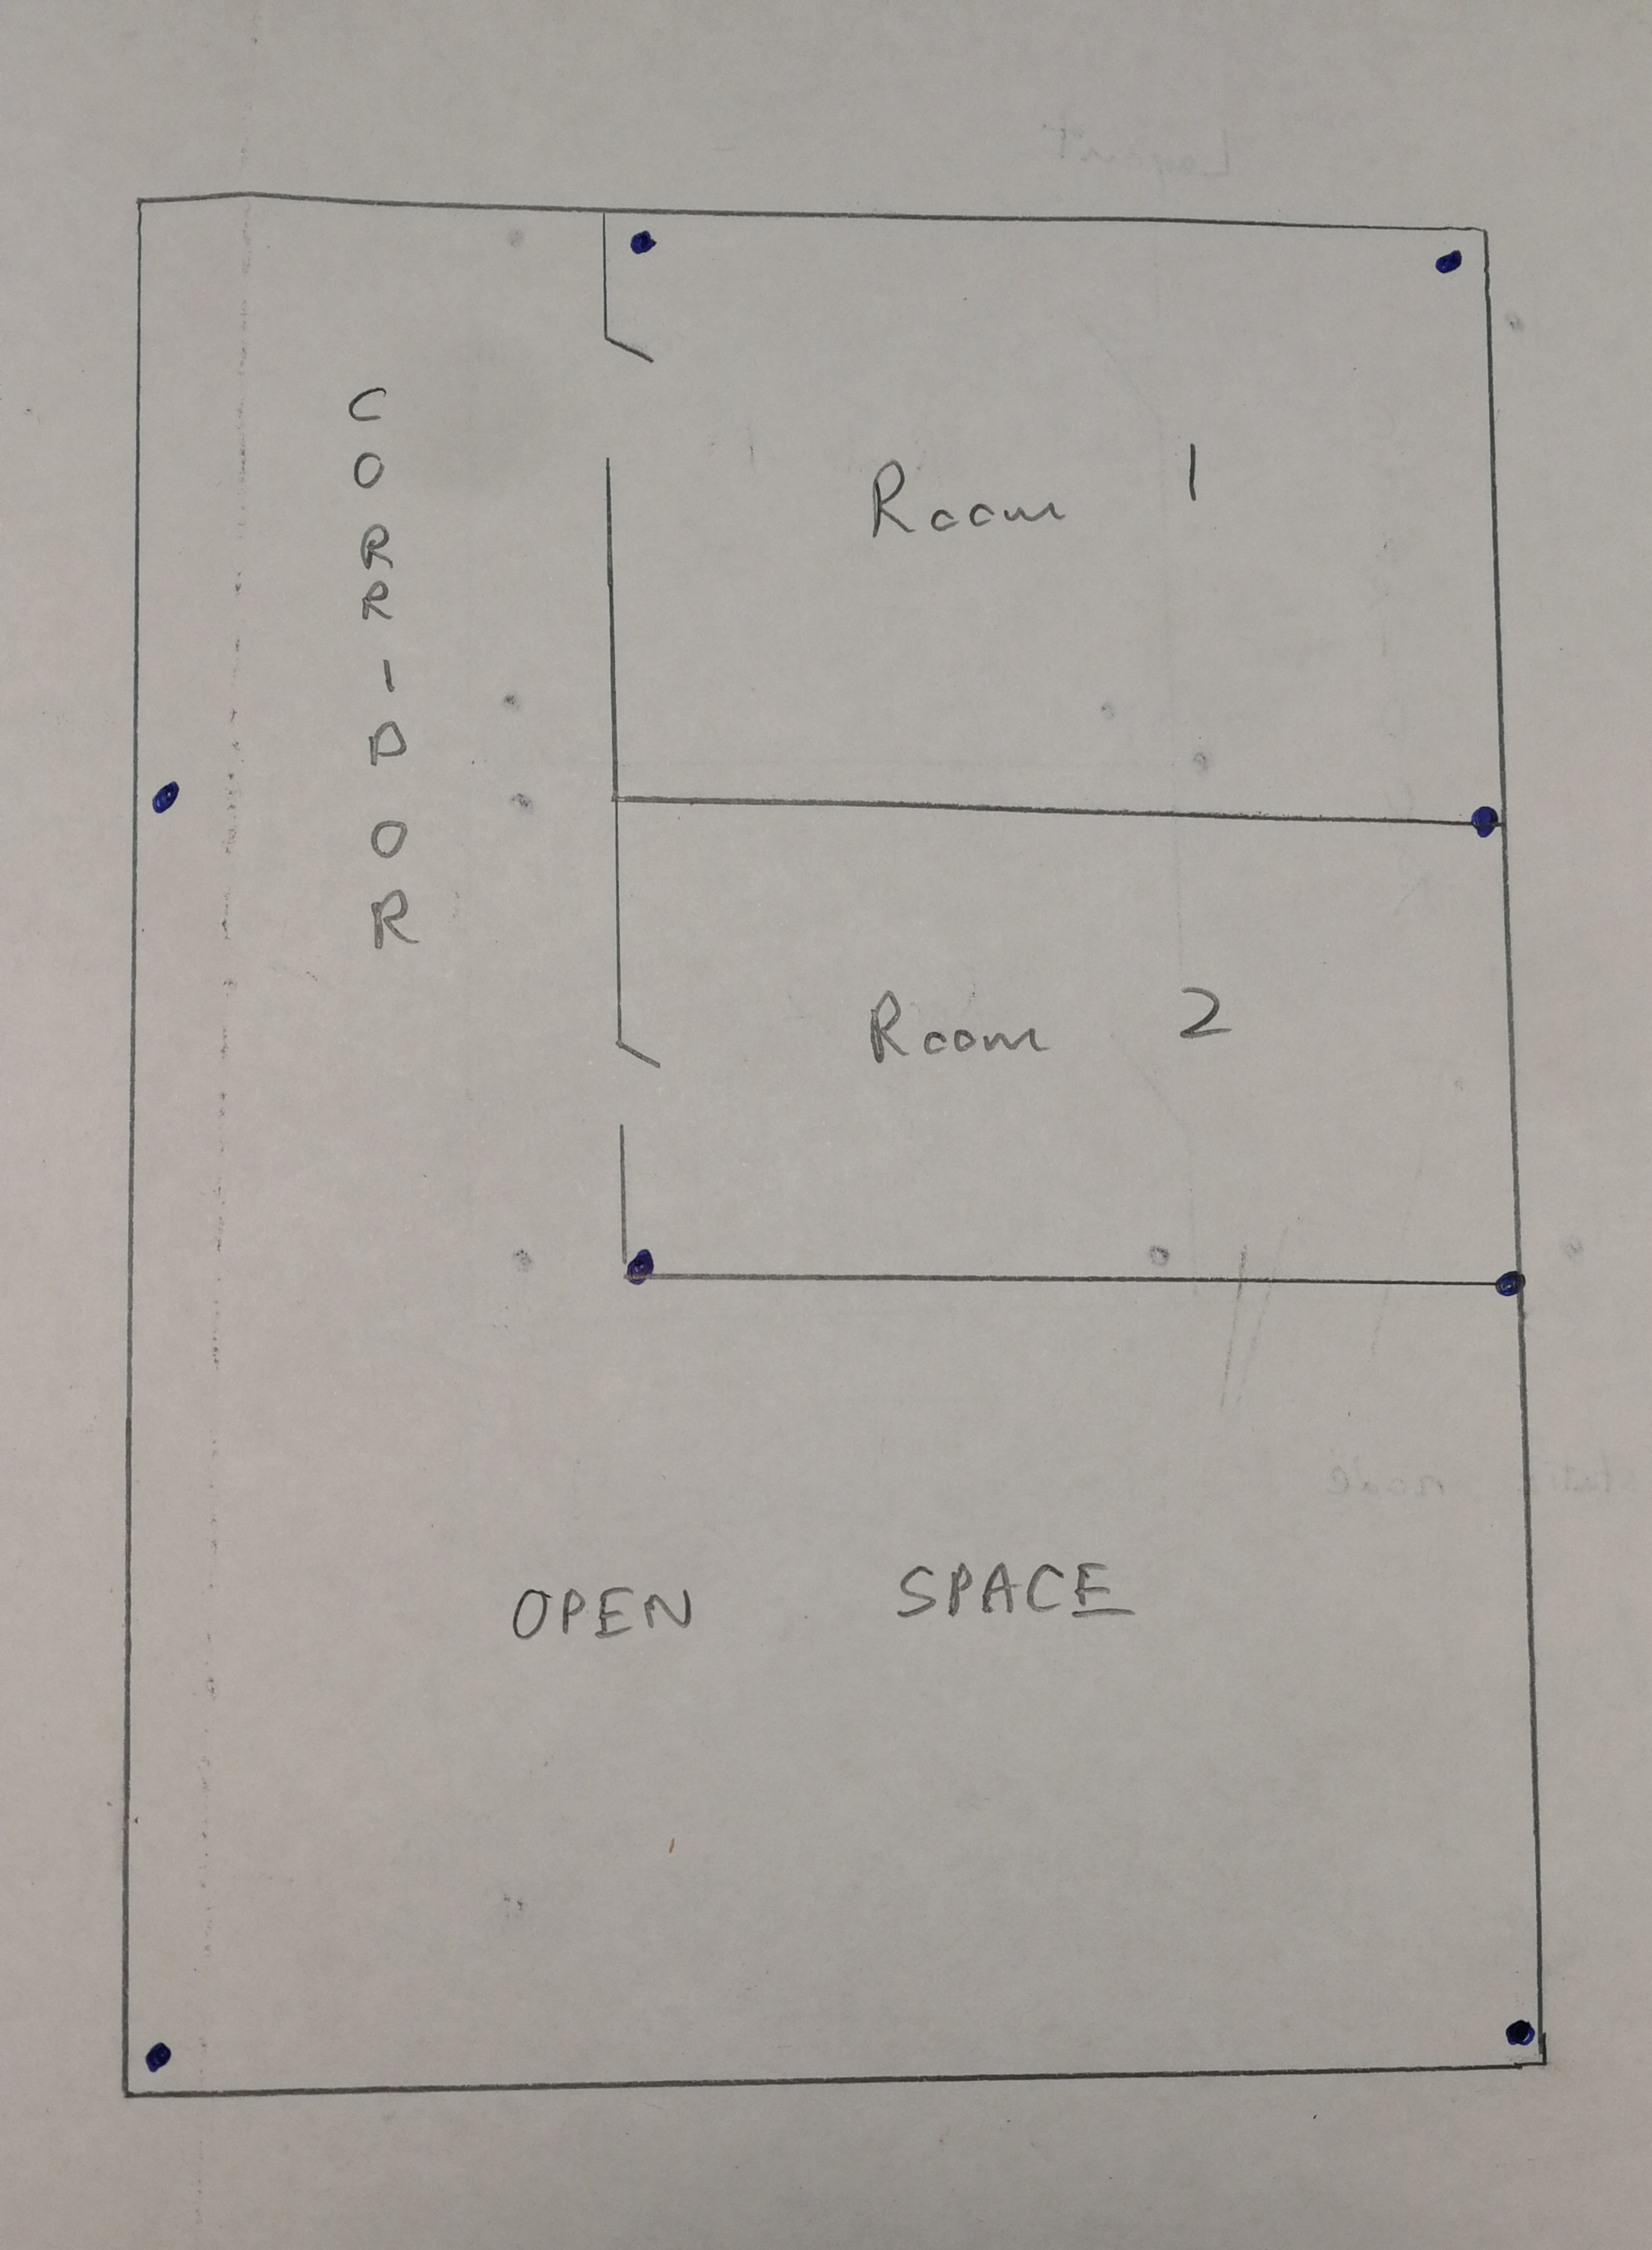 CORRIDOR
Room 1
Room 2
OPEN SPACE